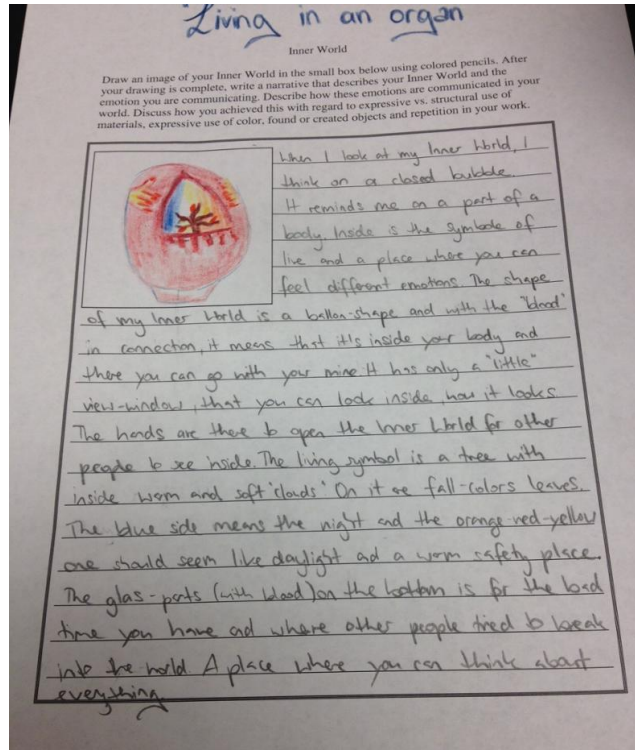 Living in an organ
Inner World
Draw an image of your Inner World in the small box below using colored pencils. After
your drawing is complete, write a narrative that describes your Inner World and the
emotion you are communicating. Describe how these emotions are communicated in your
world. Discuss how you achieved this with regard to expressive vs. structural use of
materials, expressive use of color, found or created objects and repetition in your work.
When I look at my Inner World, I
think on a closed bubble.
It reminds me on a part of a
body. Inside is the symbole of
live and a place where you can
feel different emotions. The shape
of my Inner World is a ballon-shape and with the "blood"
in connection, it means that it's inside your body and
there you can go with your mine. It has only a "little"
view-window, that you can look inside, how it looks.
The hands are there to open the Inner World for other
people to see inside. The living symbol is a tree with
inside warm and soft "clouds". On it are fall-colors leaves.
The blue side means the night and the orange-red-yellow
one should seem like daylight ad a worm safety place.
The glas-parts (with blood) on the bottom is for the bad
time you have ad where other people tried to break
into the world. A place where you can think about
everything